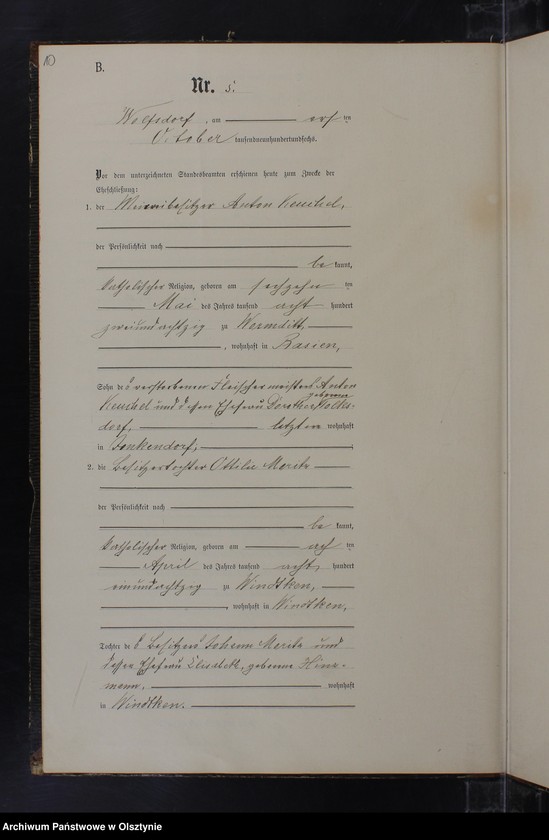 10
B.
Nr. 5.
Wolfsdorf, am
October tausendneunhundertundsechs.
Vor dem unterzeichneten Standesbeamten erschienen heute zum Zwecke der
Eheschließung:
1. der Anton Keuchel,
der Persönlichkeit nach
be kannt,
katholischer Religion, geboren am sechzehn ten
Mai des Jahres tausend acht hundert
zweiundachtzig zu Wormditt,
, wohnhaft in Basien,
Sohn des verstorbenen Fleischermeisters Anton
Keuchel und dessen Ehefrau Dorothea geborene Wolks-
dorf, letztere wohnhaft
in Jonkendorf,
2. die Besitzertochter Ottilie Moritz
der Persönlichkeit nach
be kannt,
katholischer Religion, geboren am ten
April des Jahres tausend acht hundert
einundachtzig zu Windtken,
, wohnhaft in Windtken,
Tochter des Besitzers Johann Moritz und
dessen Ehefrau Elisabeth, geborene Hinz-
mann, wohnhaft
in Windtken.
Archiwum Państwowe w Olsztynie